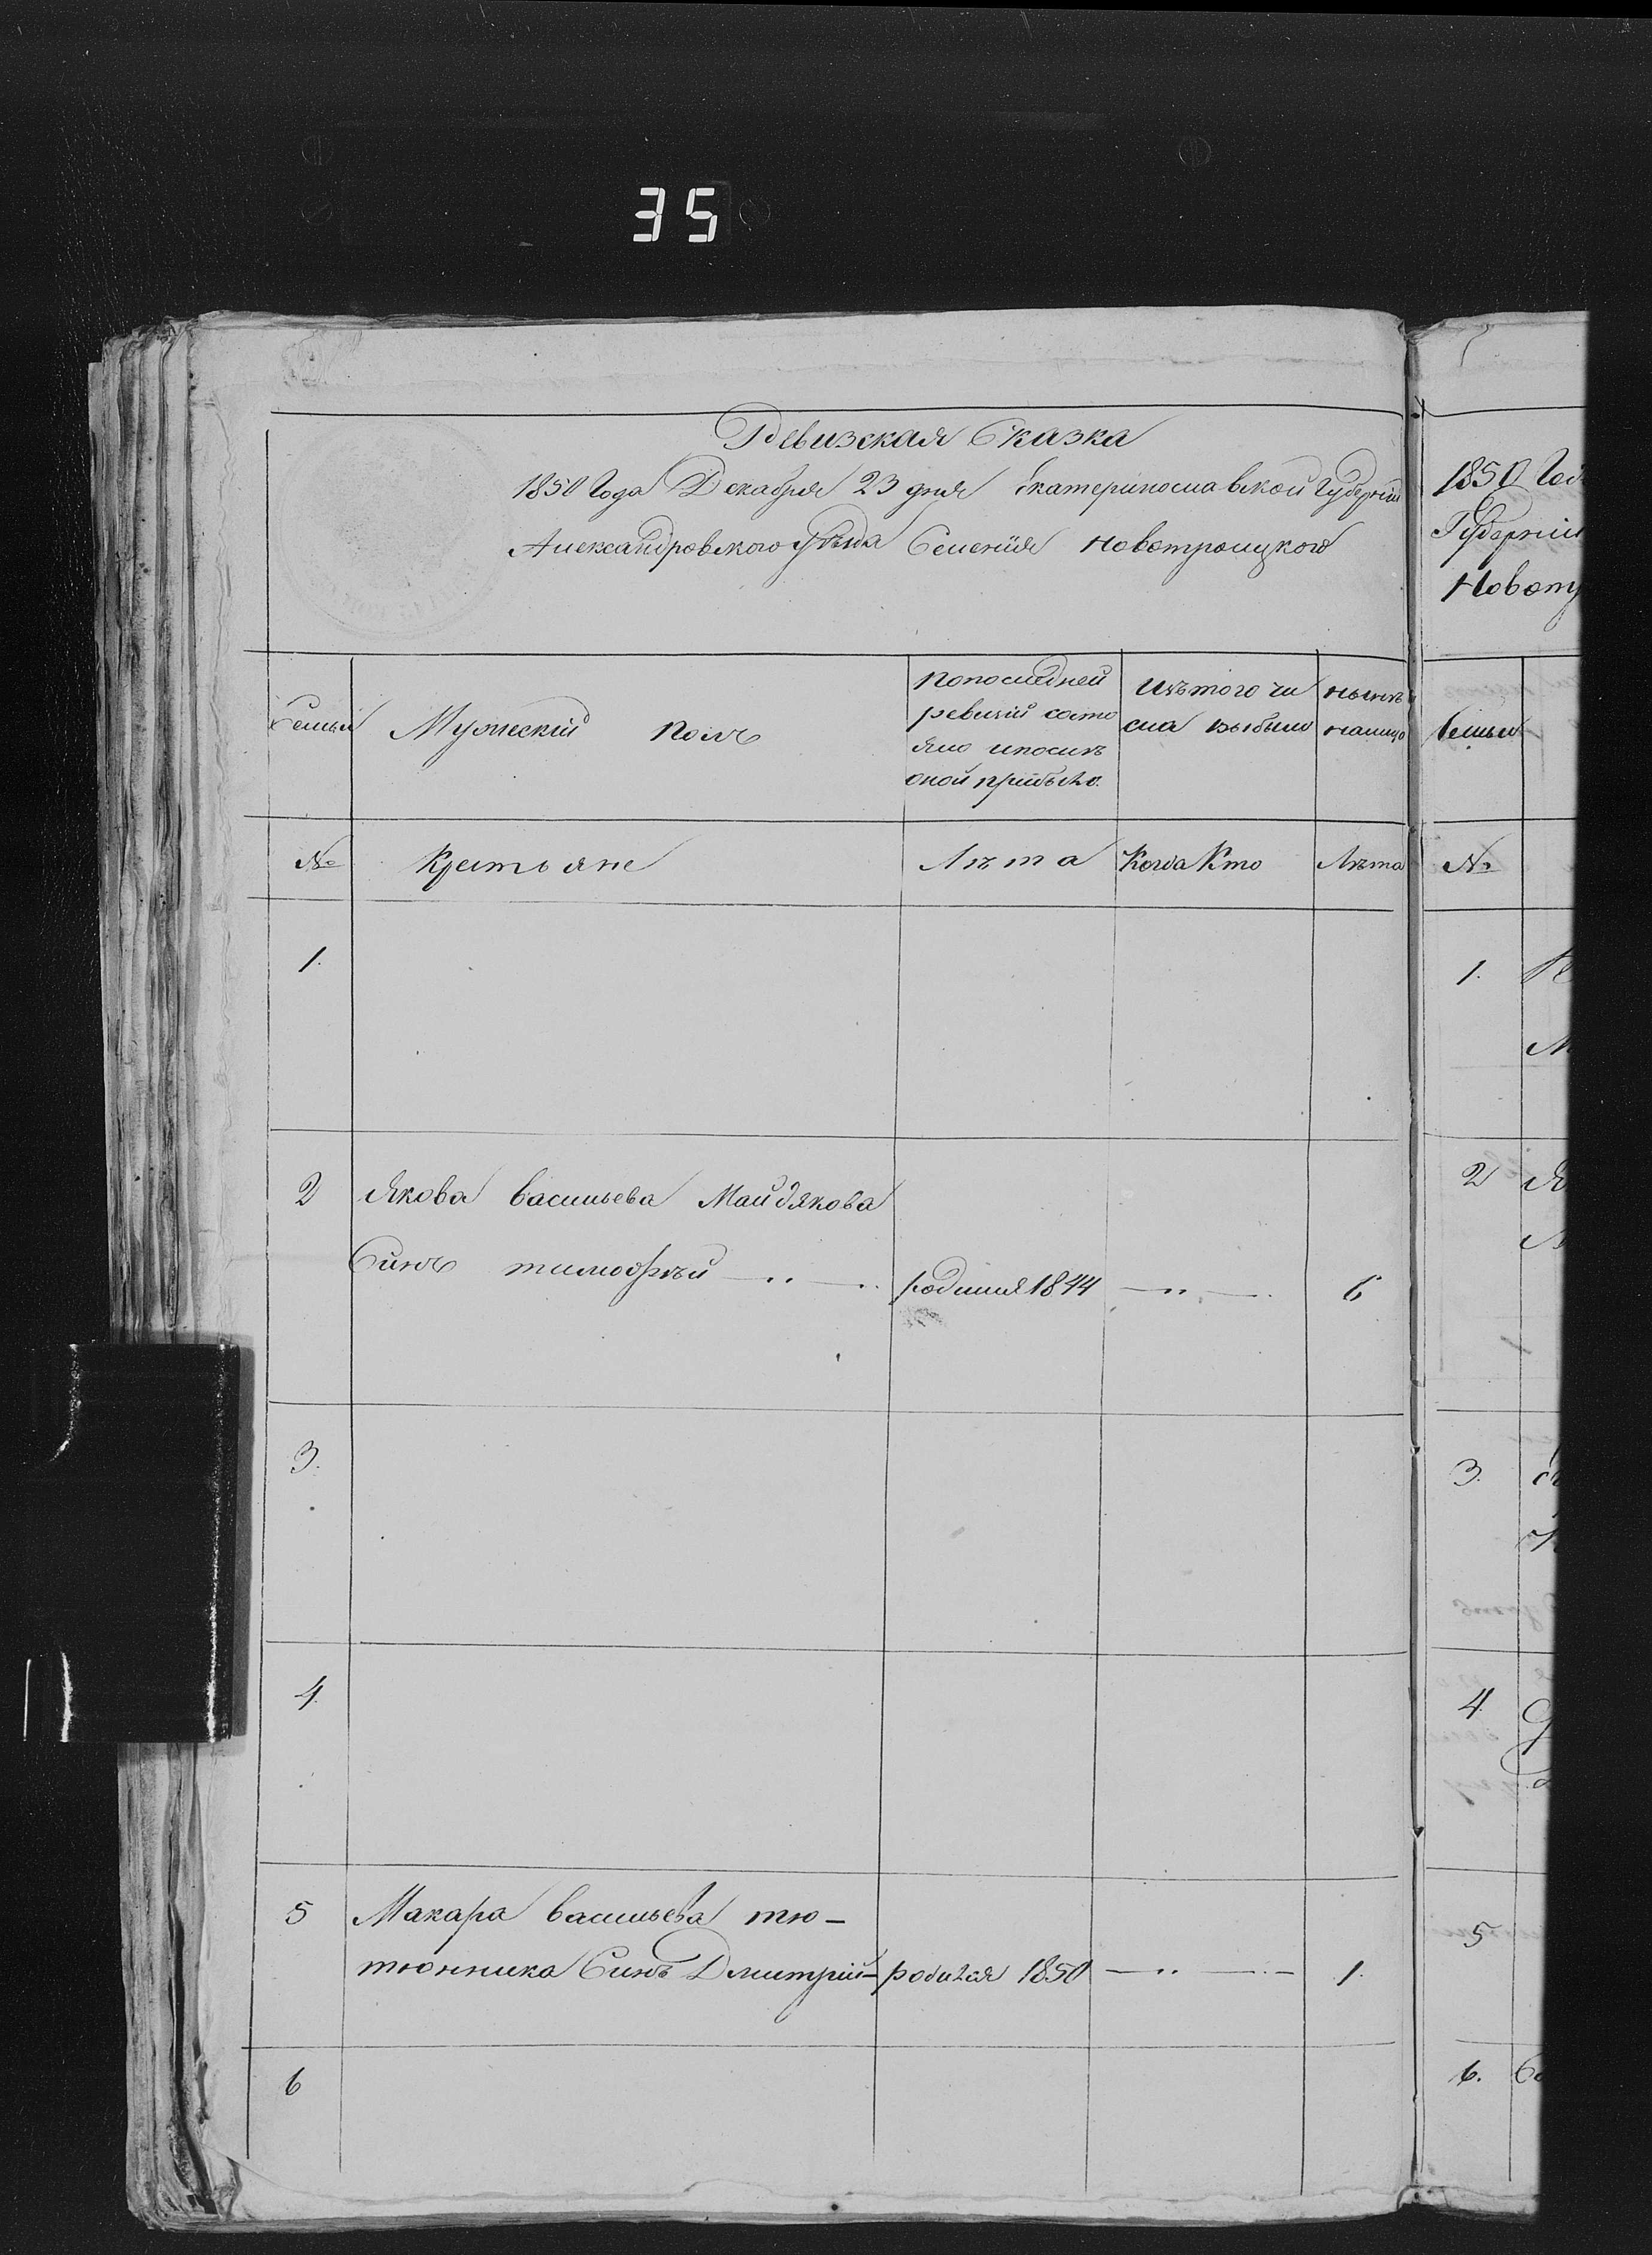 35
Ревизская Сказка
1850 Года Декабря 23 дня Екатеринославской Губерніи
Александровского уѣзда Селенія Новотроицкого
Семьи
Мужескій полъ
попоследней
ревизій состо
яло ипослѣ
оной прибыло.
Изътого чи
сла выбыло
нынѣ
налицо
№ Крестьяне Лѣта Когда Кто Лѣта
1.
2 Якова васильева Майдякова
Синъ тимофѣй — ·· — ·· родился 1844 — ·· — · 6
3.
4.
5 Макара васильева тю-
тюнника Синъ Дмитрій - родился 1850 — ·· — ·· — 1.
6
1850 Год
Губерніи
Новотр
Семьи
№
1.
2
3.
4.
5
6.